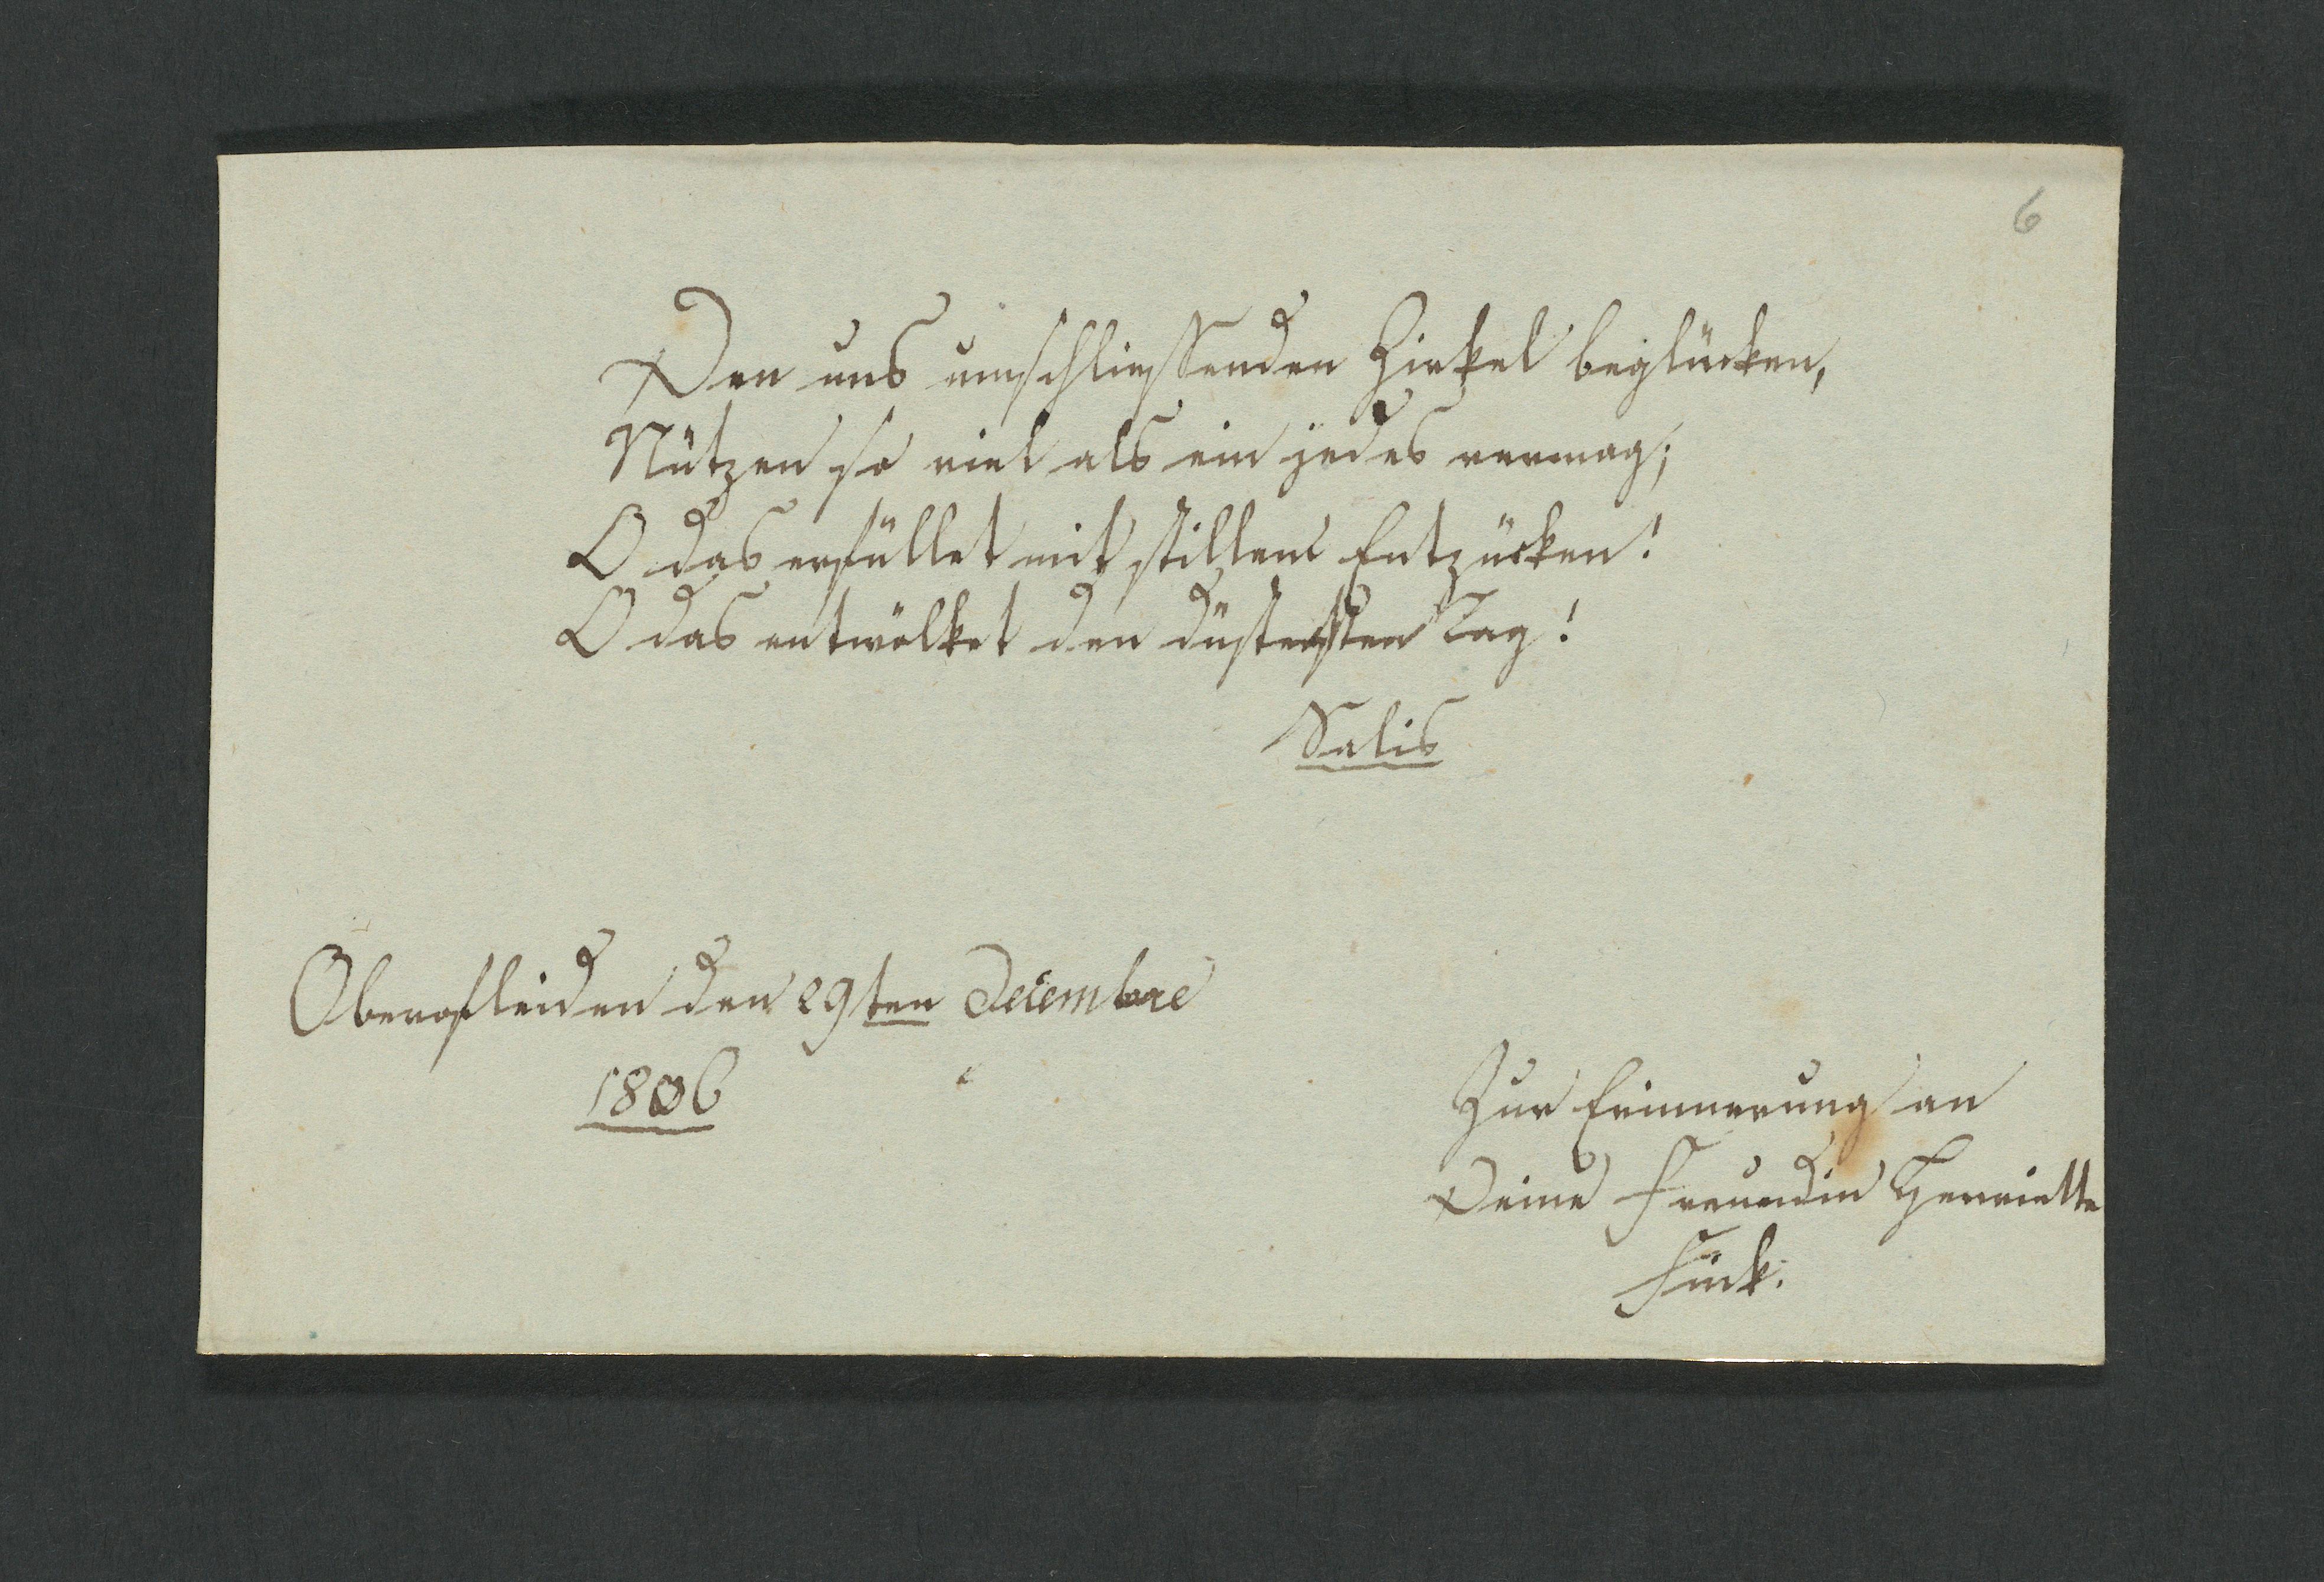 6
Den uns umschliessenden Zirkel beglücken,
Nützen so viel als ein jedes vermag;
O das erfüllet mit stillem Entzücken!
O das entwölket den düstersten Tag!
Salis
Oberofleiden den 29ten Decembre
1806
Zur Erinnerung an
Deine Freundin Henriette
Fück.